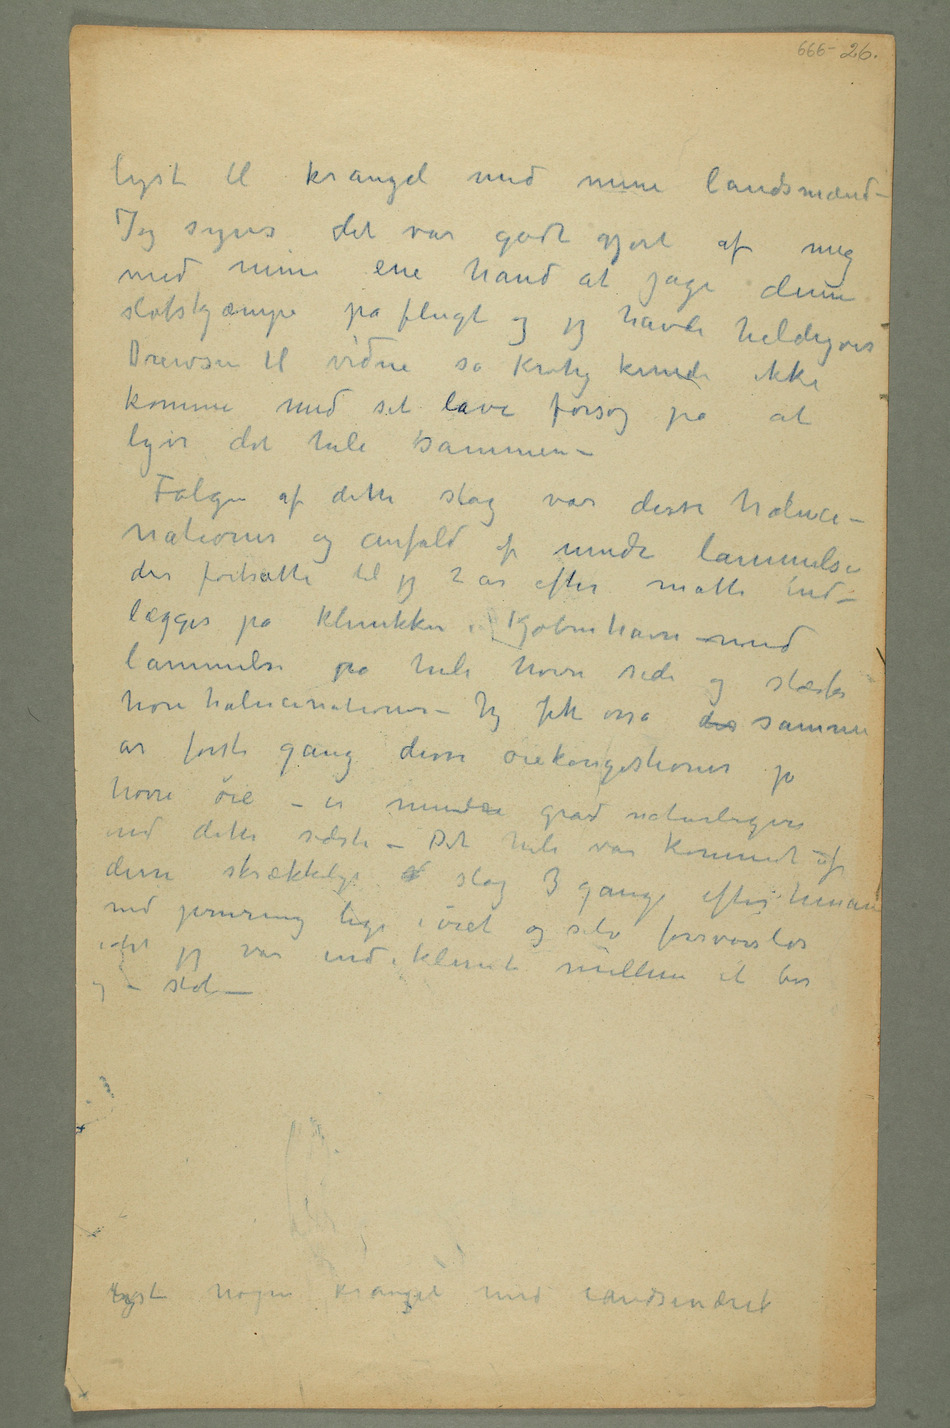 666- 26.
lyst til krangel med mine landsmænd –
Jeg synes det var godt gjort af mig
med min ene hånd at jage denne
slotskjæmpe på flugt og jeg havde heldigvis
Drewsen til vidne så Krohg kunde ikke
komme med sit lave forsøg på at
lyve det hele sammen –
Følgen af dette slag var disse haluci–
nationer og anfald af mindre lammelse
der fortsatte til jeg 2 år efter måtte ind–
lægges på klinikken i Kjøbenhavn med
lammelse på hele høire side og stærke
hørehalucinationer – Jeg fik også des samme
år første gang disse øiekongestioner på
høire øie – i mindre grad naturligvis
end dette sidste – Det hele var kommet af
disse skrækkelige slag 3 gange efter hinan
med lige i øiet og selv forsvarsløs
idet jeg var indeklemt mellem et bor
og – stol –
lyst nogen krangel med landsmænd